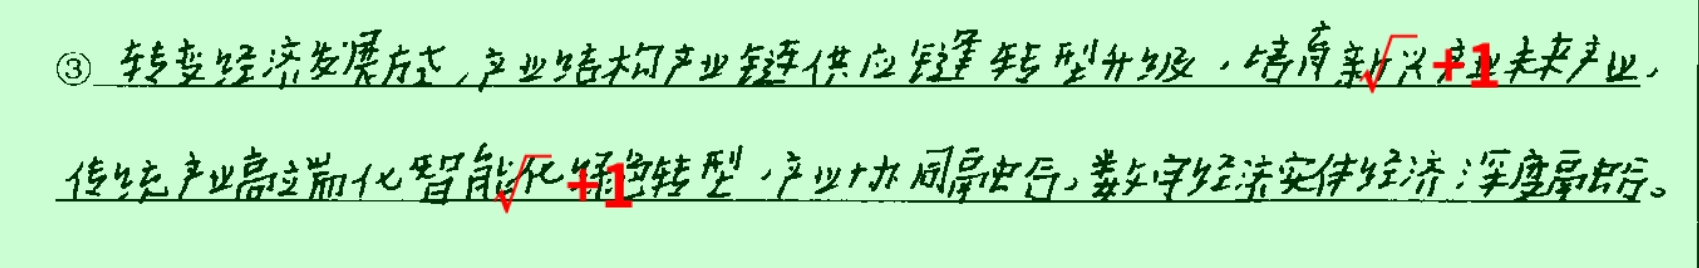 ③ 转变经济发展方式,产业结构产业链供应链转型升级,培育新兴产业未来产业,+1
传统产业高端化智能化绿色转型,产业协同融合,数字经济实体经济深度融合。+1